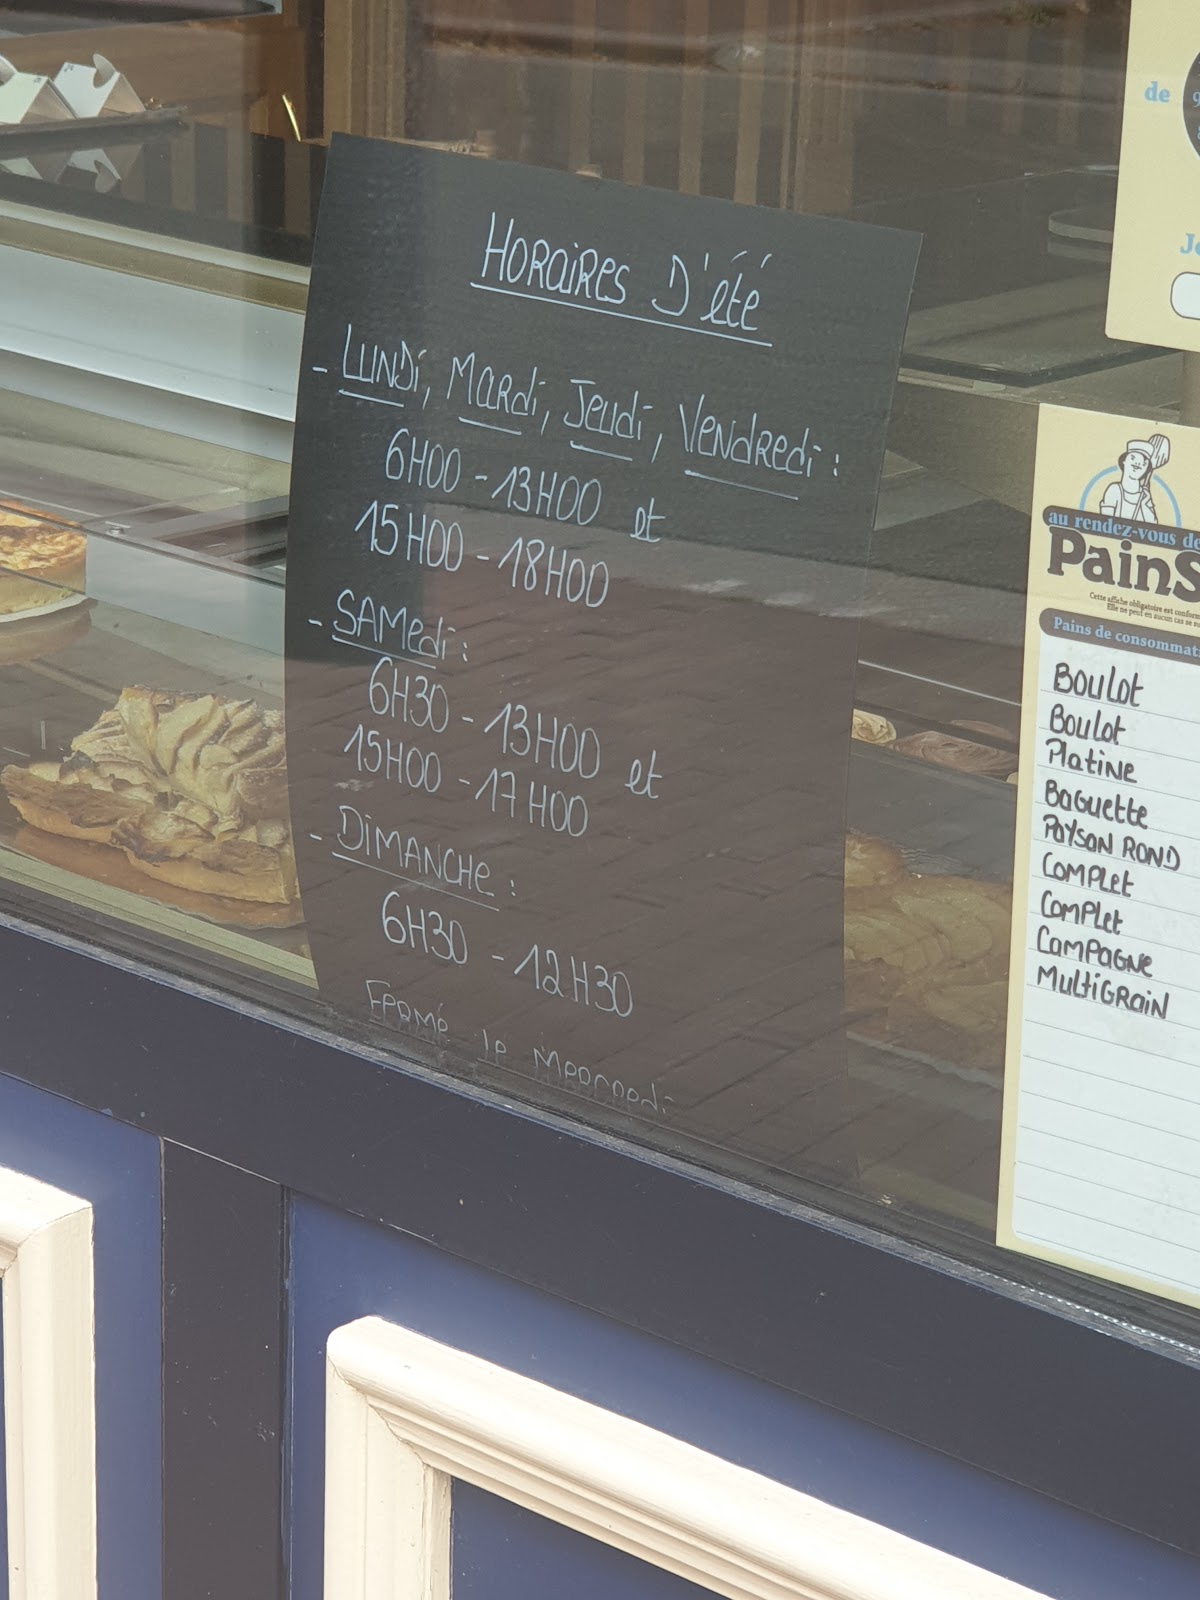 Horaires d'été
- Lundi, Mardi, Jeudi, Vendredi :
6H00 - 13H00 et
15H00 - 18H00
- Samedi :
6H30 - 13H00 et
15H00 - 17H00
- Dimanche :
6H30 - 12H30
Fermé le Mercredi
de
au rendez-vous de
Pains
Cette affiche obligatoire est
Elle ne peut en aucun cas se
Pains de
Boulot
Boulot
Platine
Baguette
Paysan Rond
Complet
Complet
Campagne
Multigrain